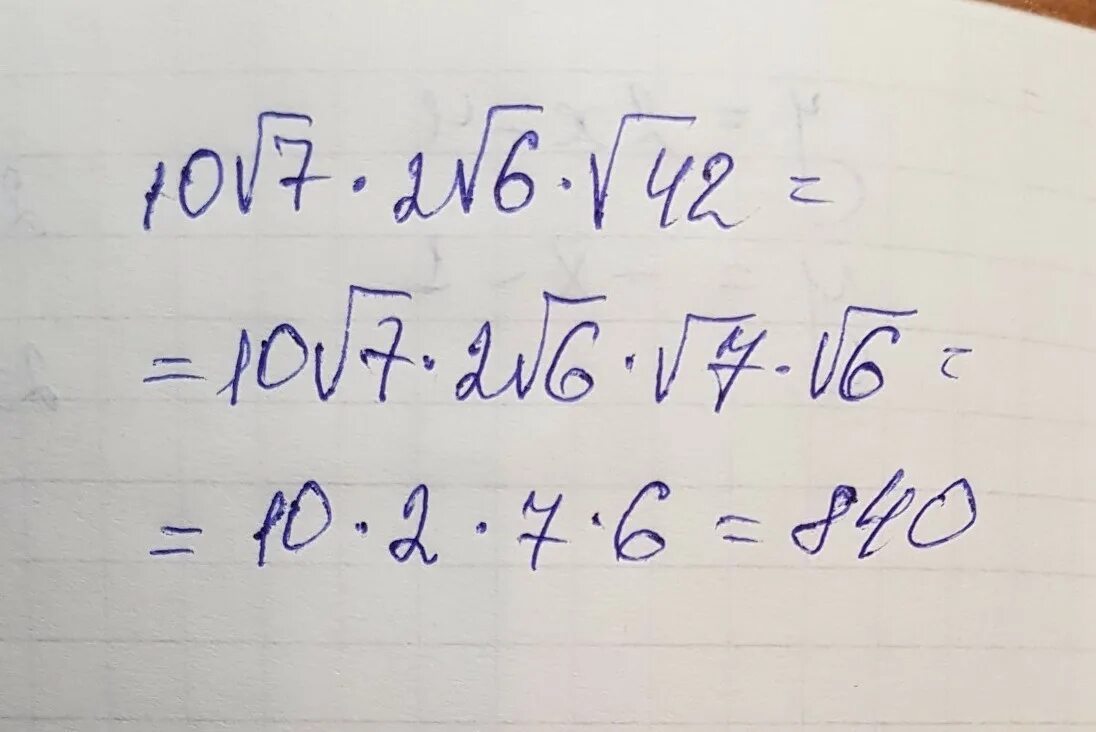 10√7 · 2√6 · √42 =
= 10√7 · 2√6 · √7 · √6 =
= 10 · 2 · 7 · 6 = 840